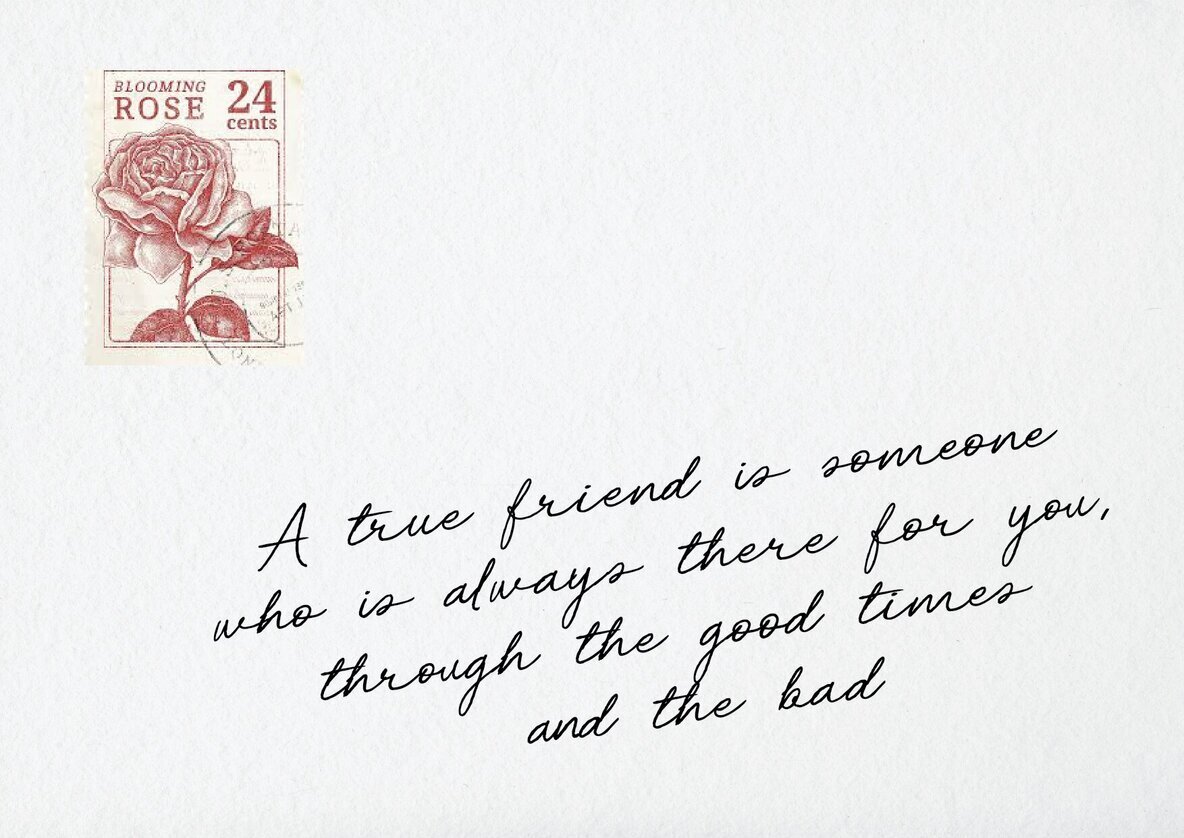 BLOOMING
ROSE
24
cents
A true friend is someone
who is always there for you,
through the good times
and the bad